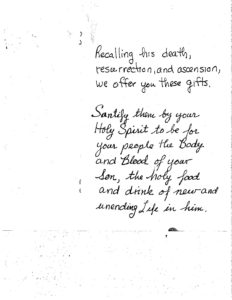 Recalling his death,
resurrection, and ascension,
we offer you these gifts.
Santify them by your
Holy Spirit to be for
your people the Body
and Blood of your
Son, the holy food
and drink of new and
unending Life in him.